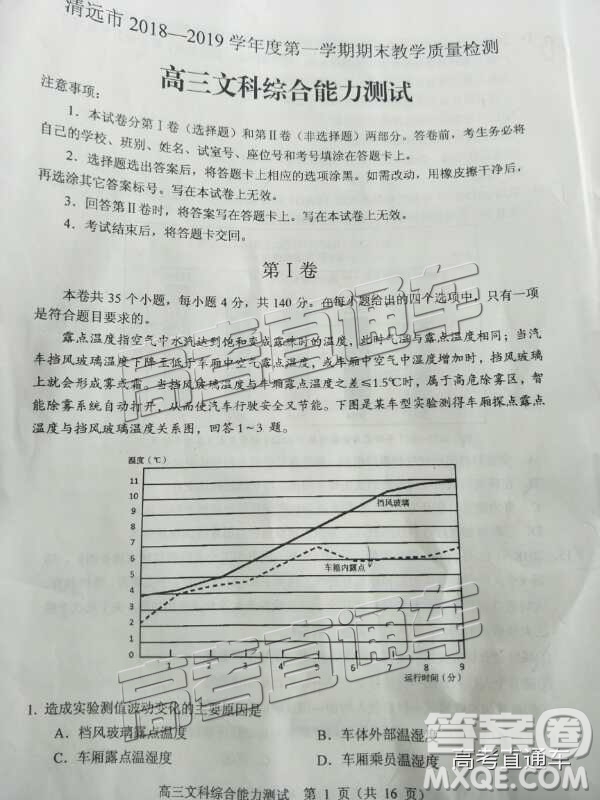 清远市 2018—2019 学年度第一学期期末教学质量检测
高三文科综合能力测试
注意事项：
1．本试卷分第Ⅰ卷（选择题）和第Ⅱ卷（非选择题）两部分。答卷前，考生务必将
自己的学校、班别、姓名、试室号、座位号和考号填涂在答题卡上。
2．选择题选出答案后，将答题卡上相应的选项涂黑。如需改动，用橡皮擦干净后，
再选涂其它答案标号。写在本试卷上无效。
3．回答第Ⅱ卷时，将答案写在答题卡上。写在本试卷上无效。
4．考试结束后，将答题卡交回。
第Ⅰ卷
本卷共 35 个小题，每小题 4 分，共 140 分。在每小题给出的四个选项中，只有一项
是符合题目要求的。
露点温度指空气中水汽达到饱和变成露珠时的温度，此时气温与露点温度相同；当汽
车挡风玻璃温度下降至低于车厢中空气露点温度，或车厢中空气温度增加时，挡风玻璃
上就会形成雾或霜。当挡风玻璃温度与车厢露点温度之差≤1.5℃时，属于高危除雾区，智
能除雾系统自动打开，从而使汽车行驶安全又节能。下图是某车型实验测得车厢探点露点
温度与挡风玻璃温度关系图，回答 1~3 题。
温度（℃）
11
10
9
8
7
6
5
4
3
2
1
0
挡风玻璃
车箱内露点
1 2 3 4 5 6 7 8 9
运行时间（分）
1. 造成实验测值波动变化的主要原因是
A．挡风玻璃露点温度 B．车体外部温湿度
C．车厢露点温湿度 D．车厢乘员温湿度
高三文科综合能力测试 第 1 页（共 16 页）
高考直通车
高考直通车
答案卷
高考直通车